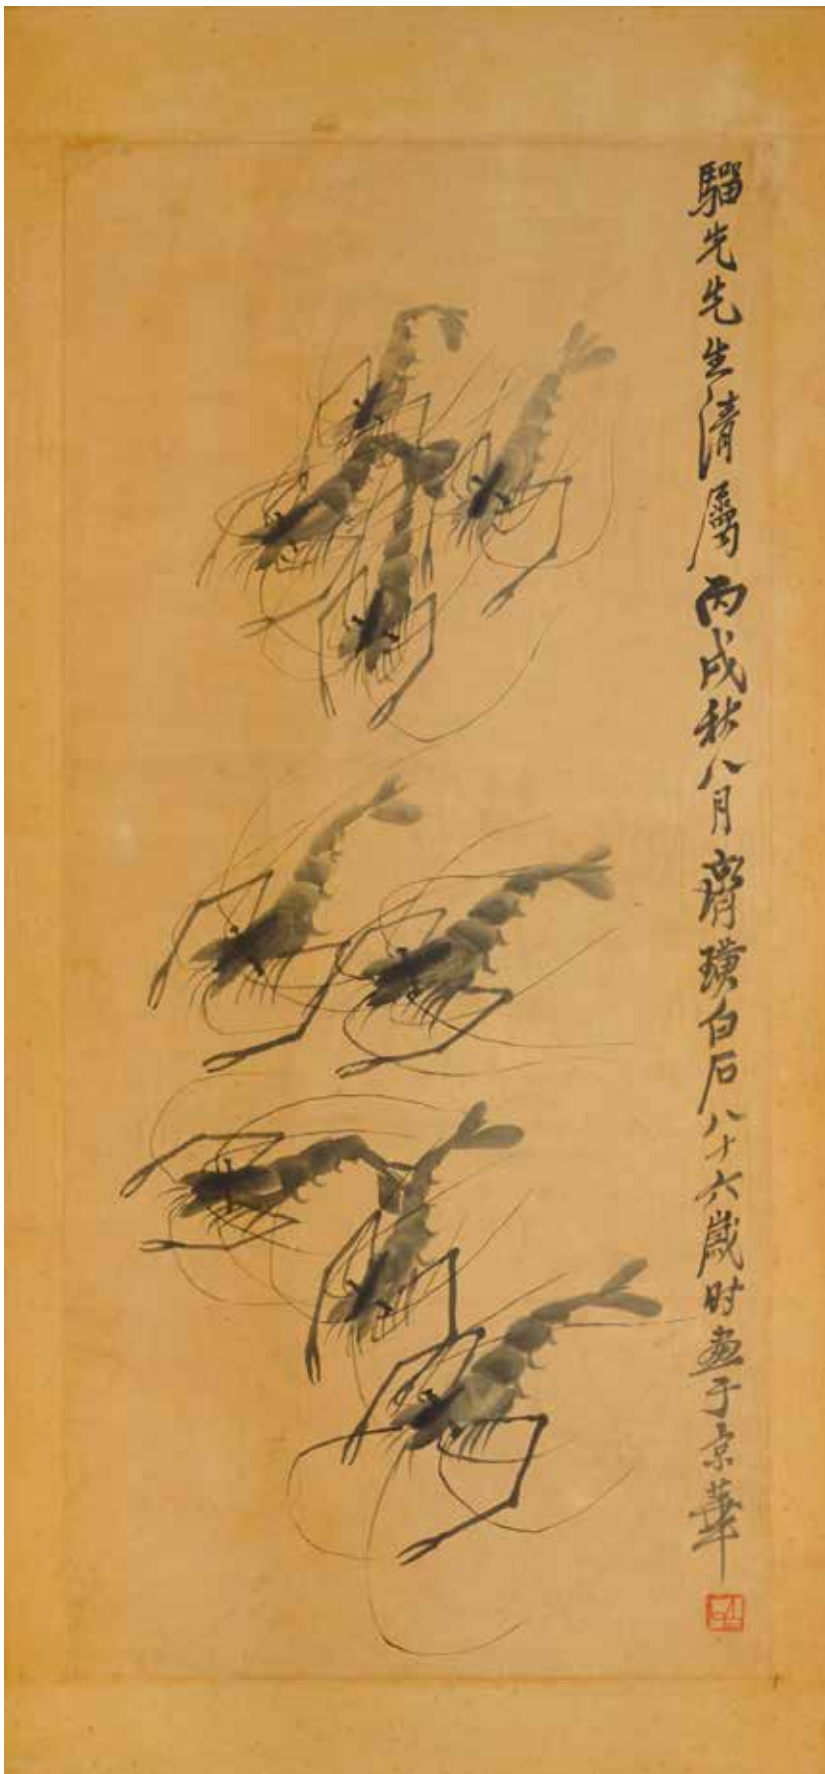 騮先先生清屬丙戌秋八月齊璜白石八十六歲时畫于京華